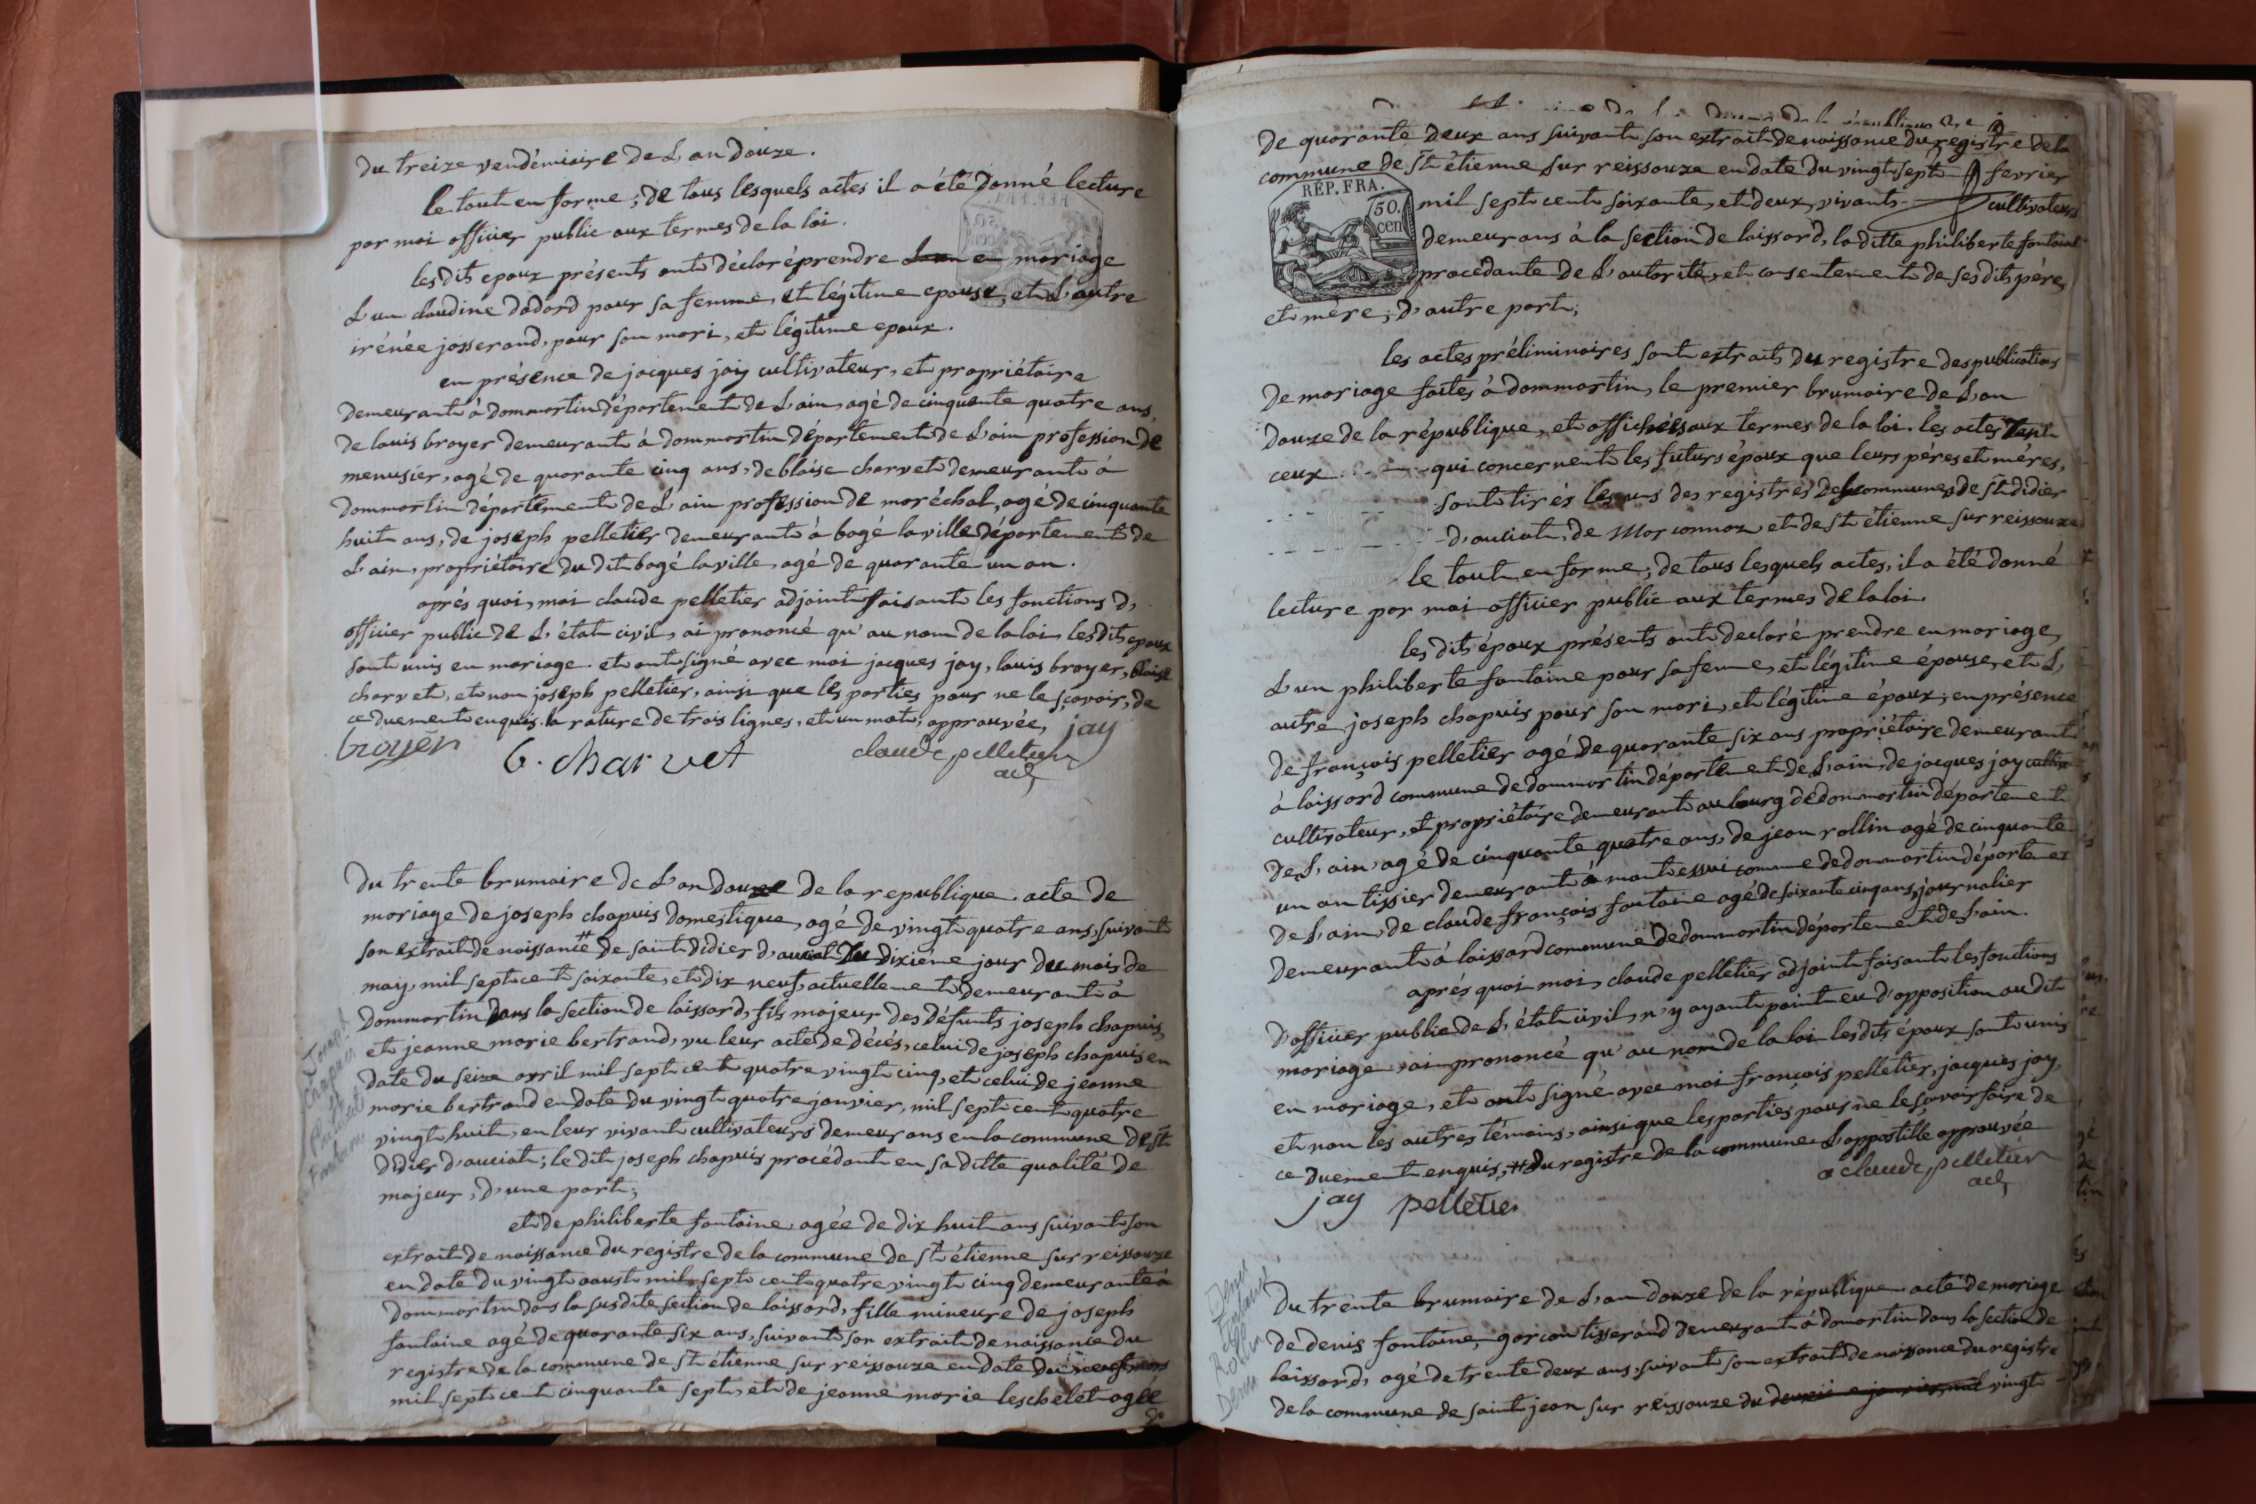 du treize vendémiaire de L'an douze.
le tout en forme; de tous lesquels actes il a été donné lecture
par moi officier public aux termes de la loi.
lesdits epoux présents ont déclaré prendre en mariage
L'un claudine dodard pour sa femme, et légitime epouse, et L'autre
irénée josserand, pour son mari, et légitime epoux.
en présence de jacques jay cultivateur, et propriétaire
demeurant à dommartin département de L'ain, agé de cinquante quatre ans,
de louis broyer demeurant à dommartin département de L'ain profession de
menusier, agé de quarante cinq ans, de blaise charvet demeurant à
dommartin département de L'ain profession de maréchal, agé de cinquante
huit ans, de joseph pelletier demeurant à bagé la ville département de
L'ain, propriétaire du dit bagé la ville, agé de quarante un an.
aprés quoi, moi claude pelletier adjoint faisant les fonctions d,
officier public de L'état civil, ai prononcé qu'au nom de la loi, lesdits epoux
sont unis en mariage. et ont signé avec moi jacques jay, louis broyer, blaise
charvet, et non joseph pelletier, ainsi que les parties pour ne le sçavoir, de
ce duement enquis. la rature de trois lignes, et un mot, approuvée,
jay
broyer
b. charvet
claude pelletier
adj
du trente brumaire de L'an douze de la republique. acte de
mariage de joseph chapuis domestique, agé de vingt quatre ans, suivant
son extrait de naissance # de saint didier d'auciat du dixiéme jour du mois de
may, mil sept cent soixante, et dix neuf, actuellement demeurant à
dommartin dans la section de loissard, fils majeur des défunts joseph chapuis,
et jeanne marie bertrand, vu leur acte de décés, celui de joseph chapuis en
date du seize avril mil sept cent quatre vingt cinq, et celui de jeanne
marie bertrand en date du vingt quatre janvier, mil sept cent quatre
vingt huit, en leur vivant cultivateurs demeurans en la commune de st
didier d'auciat; le dit joseph chapuis procédant en sa ditte qualité de
majeur, d'une part;
Joseph
Chapuis
&
Fontaine
et de philiberte fontaine agée de dix huit ans suivant son
extrait de naissance du registre de la commune de st étienne sur reissouze
en date du vingt aoust mil sept cent quatre vingt cinq demeurante à
dommartin dans la susdite section de loissard, fille mineure de joseph
fontaine agé de quarante six ans, suivant son extrait de naissance du
registre de la commune de st étienne sur reissouze en date du
mil sept cent cinquante sept, et de jeanne marie leschelet agée
de quarante deux ans suivant son extrait de naissance du registre de la
commune de st étienne sur reissouze en date du vingt sept fevrier
mil sept cent soixante, et deux, vivants cultivateurs
RÉP. FRA.
50.
cen
demeurans à la section de loissard, la ditte philiberte fontaine
procédante de L'autorité, et consentement de ses dits pére,
et mére; d'autre part;
les actes préliminaires sont extraits du registre des publications
de mariage faites à dommartin, le premier brumaire de L'an
douze de la république, et affichées aux termes de la loi. les actes tant
ceux qui concernent les futurs époux que leurs peres et méres,
sont tirés les uns des registres des communes de st didier
d'auciat, de Marconnoz et de st étienne sur reissouze
le tout en forme; de tous lesquels actes, il a été donné
lecture par moi officier public aux termes de la loi.
les dits époux présents ont declaré prendre en mariage,
L'un philiberte fontaine pour sa femme, et légitime épouse, et L'
autre joseph chapuis pour son mari, et légitime époux; en présence
de françois pelletier agé de quarante six ans propriétaire demeurant
à loissard commune de dommartin département de L'ain, de jacques jay
cultivateur, et propriétaire demeurant au bourg de dommartin département
de L'ain, agé de cinquante quatre ans, de jean rollin agé de cinquante
un an tissier demeurant à montessui commune de dommartin département
de L'ain de claude françois fontaine agé de soixante cinq ans, journalier
demeurant à loissard commune de dommartin département de L'ain.
aprés quoi moi, claude pelletier adjoint faisant les fonctions
d'officier public de L'état civil, n'y ayant point eu d'opposition au dit
mariage, ai prononcé qu'au nom de la loi lesdits époux sont unis
en mariage, et ont signé avec moi françois pelletier, jacques jay,
et non les autres témoins, ainsi que les parties pour ne le sçavoir faire de
ce duement enquis, # du registre de la commune. L'appostille approuvée
jay
pelletier
claude pelletier
adj
Denis
Fontaine
&
Rollin
du trente brumaire de L'an douze de la république. acte de mariage
de denis fontaine, garcon tisserand demeurant à domartin dans la section de
loissard, agé de trente deux ans, suivant son extrait de naissance du registre
de la commune de saint jean sur réissouze du vingt